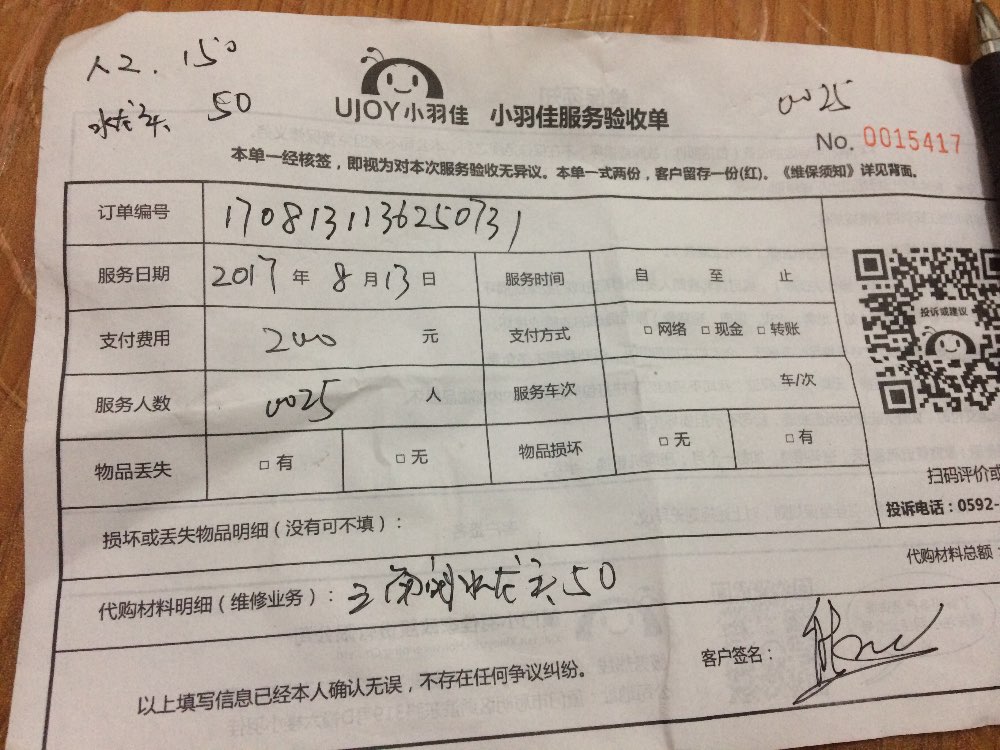 人工. 150
水龙头 50
UJOY小羽佳 小羽佳服务验收单
0025
No. 0015417
本单一经核签，即视为对本次服务验收无异议。本单一式两份，客户留存一份(红)。《维保须知》详见背面。
订单编号 1708131136250731
服务日期 2017 年 8 月 13 日 服务时间 自 至 止
支付费用 200 元 支付方式 □ 网络 □ 现金 □ 转账
服务人数 0025 人 服务车次 车/次
物品丢失 □ 有 □ 无 物品损坏 □ 无 □ 有
投诉或建议
扫码评价或
投诉电话：0592-
损坏或丢失物品明细（没有可不填）：
代购材料总额：
代购材料明细（维修业务）： 三角阀水龙头 50
客户签名：
以上填写信息已经本人确认无误，不存在任何争议纠纷。